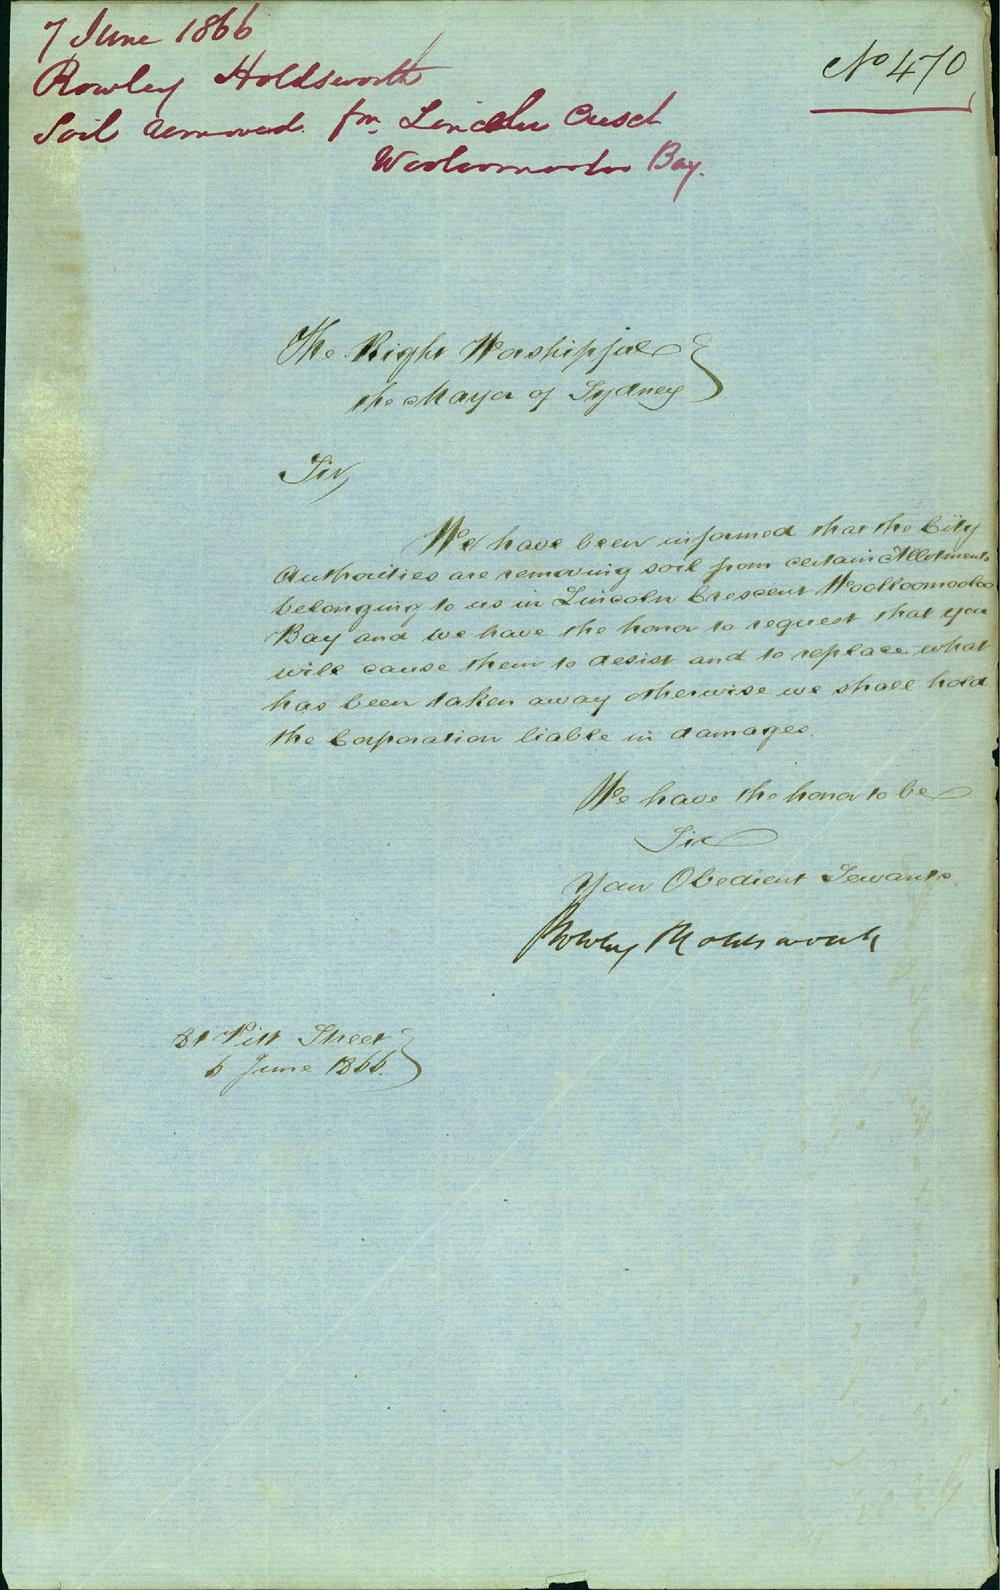 7 June 1866
Rowley Holdsworth
Soil removed fm Lincoln Cresct
Wooloomooloo Bay.
No 470
The Right Worshipful
the Mayor of Sydney
Sir,
We have been informed that the City
Authorities are removing soil from certain Allotments
belonging to us in Lincoln Crescent Woolloomooloo
Bay and we have the honor to request that you
will cause them to desist and to replace what
has been taken away otherwise we shall hold
the Corporation liable in damages.
We have the honor to be
Sir
Your Obedient Servants.
Rowley Holdsworth
Pitt Street
6 June 1866.